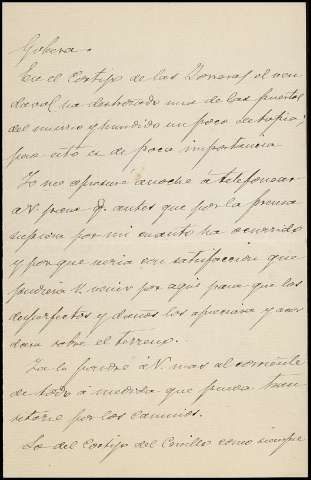 Gobera.
En el Cortijo de las Donaras el ven
daval ha destrozado una de las puertas
del muro y hundido un poco de tapia,
pero esto es de poca importancia
Yo me apresuré anoche á telefonear
á V. para q. antes que por la prensa
supiera por mi cuanto ha ocurrido
y por que veria con satisfaccion que
pudiera V. venir por aqui para que los
desperfectos y daños los apreciara y acor
dara sobre el terreno.
Ya le pondré á V. mas al corriente
de todo á medida que pueda tran
sitarse por los caminos.
Lo del Cortijo del como siempre